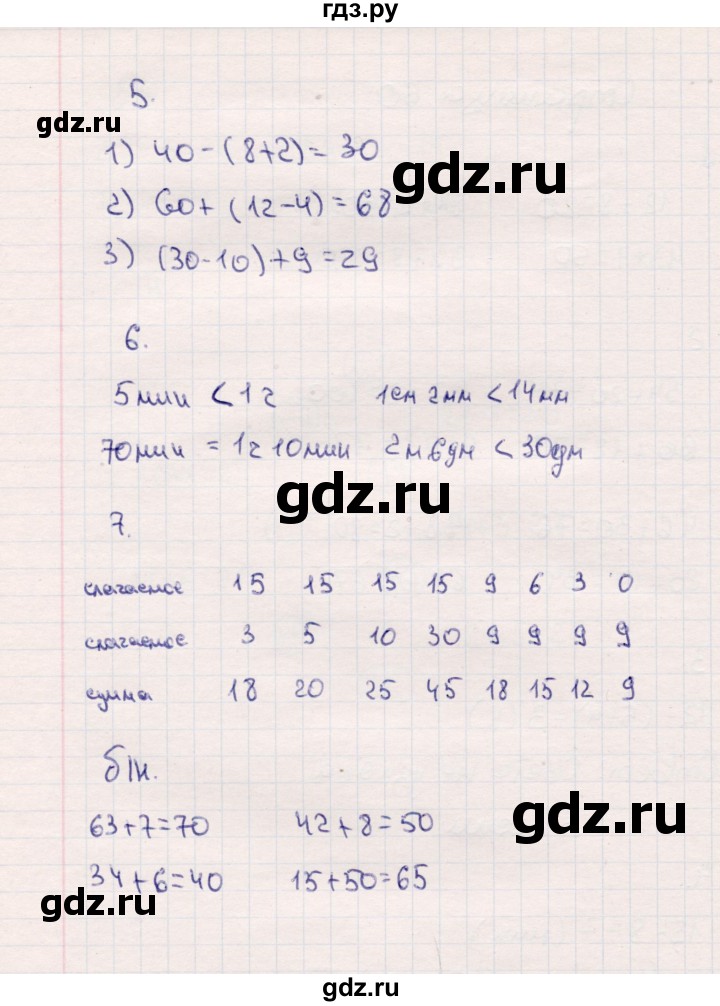 гдз.ру
5.
gdz.ru
1) 40-(8+2)=30
gdz.ru
2) 60+(12-4)=68
3) (30-10)+9=29
6.
5мин <1ч 1см 2мм <14мм
70мин = 1ч 10мин 2м 6дм <30дм
gdz.ru
7.
слагаемое 15 15 15 15 9 6 3 0
слагаемое 3 5 10 30 9 9 9 9
сумма 18 20 25 45 18 15 12 9
б/н.
gdz.ru
63+7=70 42+8=50
34+6=40 15+50=65
gdz.ru
gdz.ru